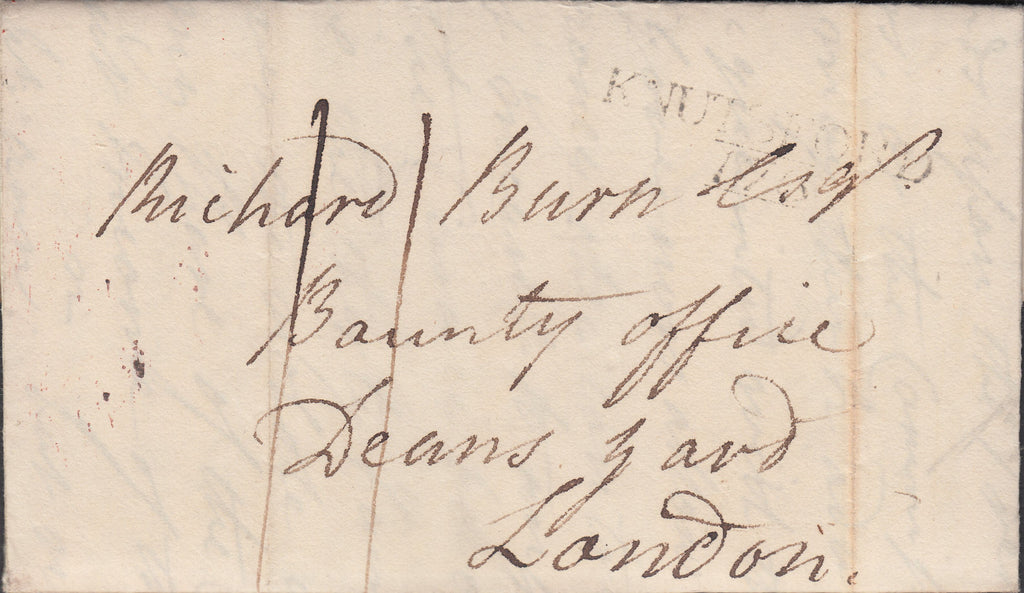 KNUTSFORD
Richard Burn Esqr
Bounty office
Deans yard
London.